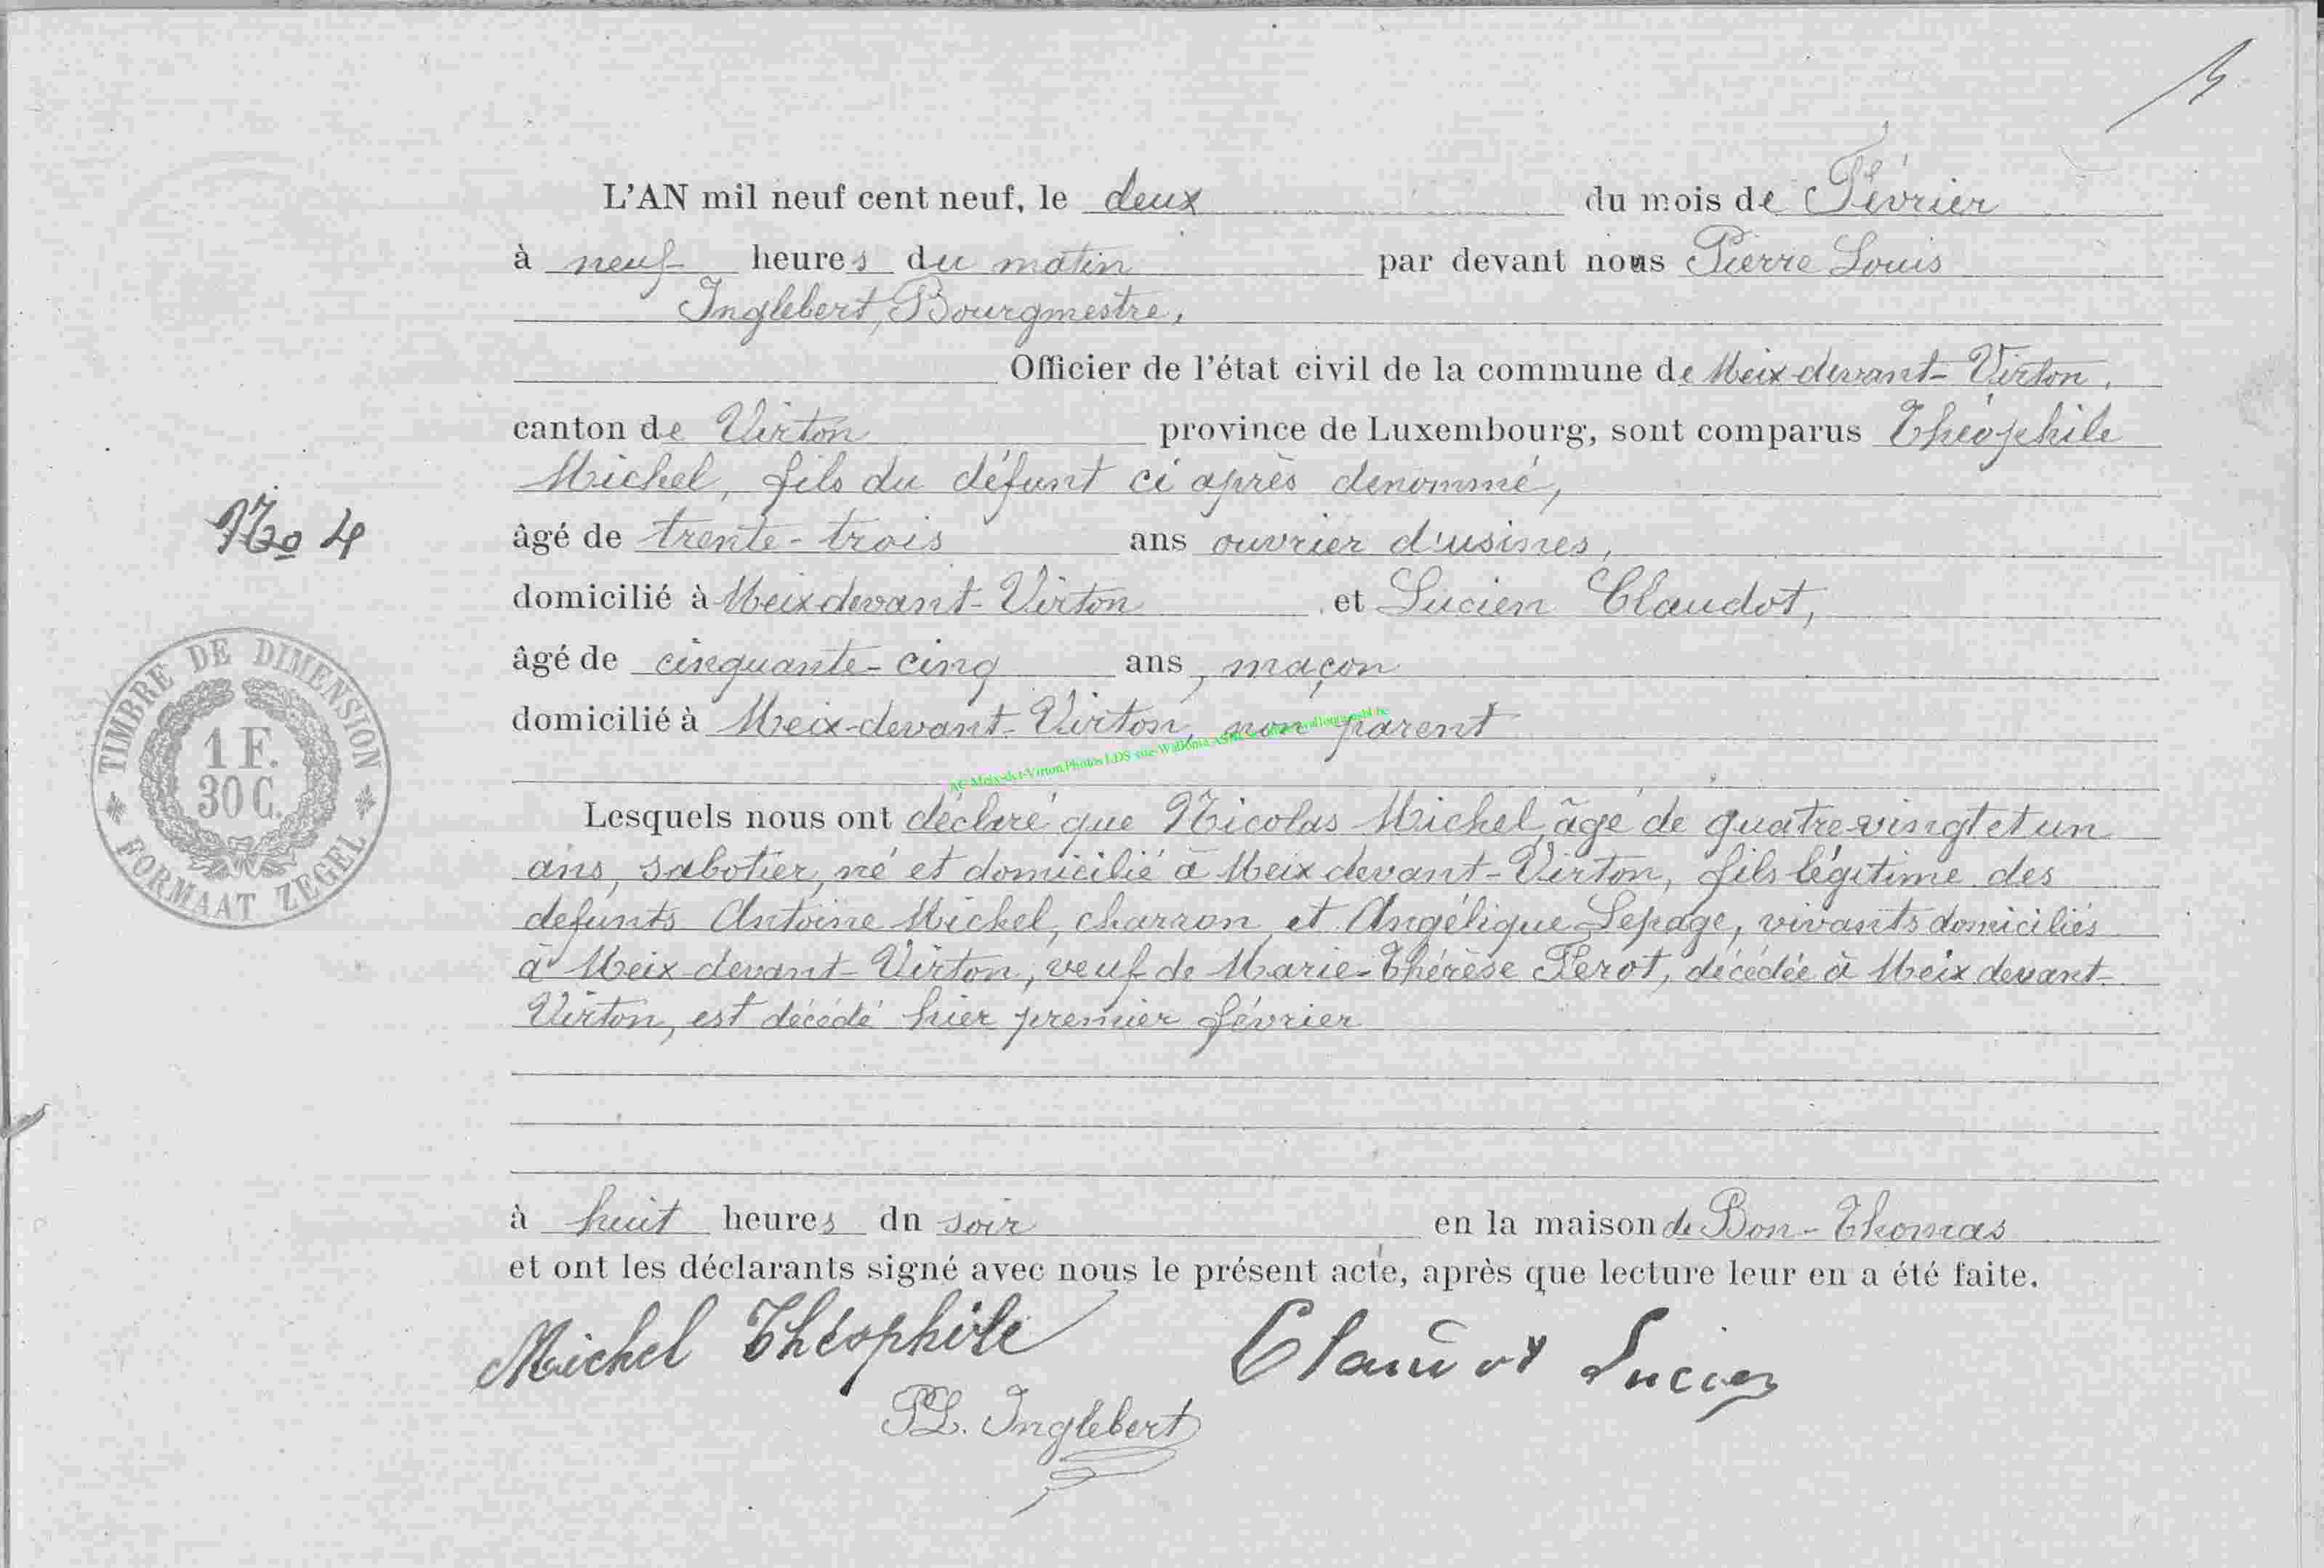 L'AN mil neuf cent neuf, le deux du mois de Février
à neuf heures du matin par devant nous Pierre Louis
Inglebert, Bourgmestre,
Officier de l'état civil de la commune de Meix-devant-Virton,
canton de Virton province de Luxembourg, sont comparus Théophile
Michel, fils du défunt ci après denommé,
No 4
âgé de trente-trois ans ouvrier d'usines,
domicilié à Meix devant-Virton et Lucien Claudot,
âgé de cinquante-cinq ans, maçon
domicilié à Meix-devant-Virton, non parent
TIMBRE DE DIMENSION
1 F.
30 C.
FORMAAT ZEGEL
Lesquels nous ont déclaré que Nicolas Michel, âgé de quatre-vingt et un
ans, sabotier, né et domicilié à Meix devant-Virton, fils légitime des
defunts Antoine Michel, charron, et Angélique Lepage, vivants domiciliés
à Meix-devant-Virton, veuf de Marie-Thérèse Perot, décédée à Meix devant-
Virton, est décédé hier premier février
à huit heures du soir en la maison de Bon-Thomas
et ont les déclarants signé avec nous le présent acte, après que lecture leur en a été faite.
Michel Théophile Claudot Lucien
PL. Inglebert